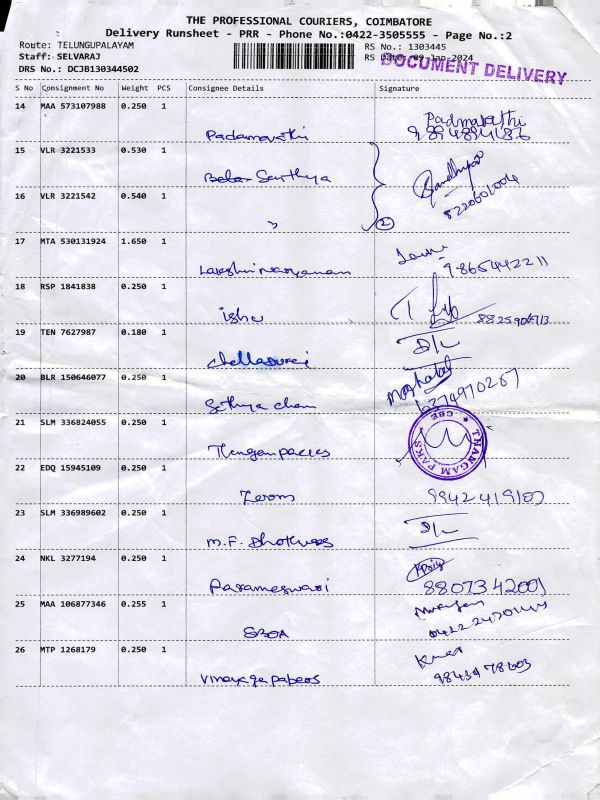 THE PROFESSIONAL COURIERS, COIMBATORE
Delivery Runsheet - PRR - Phone No.:0422-3505555 - Page No.:2
Route: TELUNGUPALAYAM
RS No.: 1303445
Staff: SELVARAJ
RS Date: 09-Jan-2024
DOCUMENT DELIVERY
DRS No.: DCJB130344502
S No Consignment No Weight PCS Consignee Details Signature
14 MAA 573107988 0.250 1
Padmavathi
Padamavathi 9894894186
15 VLR 3221533 0.530 1
Sathya
8220601004
16 VLR 3221542 0.540 1
"
2
17 MTA 530131924 1.650 1
Lakshminarayanan 9865442211
18 RSP 1841838 0.250 1
isha
19 TEN 7627987 0.180 1
D/L
Chelladurai
20 BLR 150646077 0.250 1
6374970267
Sathya
21 SLM 336824055 0.250 1
THANGAM PAKS CBE
Thangam
22 EDQ 15945109 0.250 1
23 SLM 336989602 0.250 1
D/L
M.F.
24 NKL 3277194 0.250 1
Parameswari
25 MAA 106877346 0.255 1
Murugan
26 MTP 1268179 0.250 1
Vinayaga papers